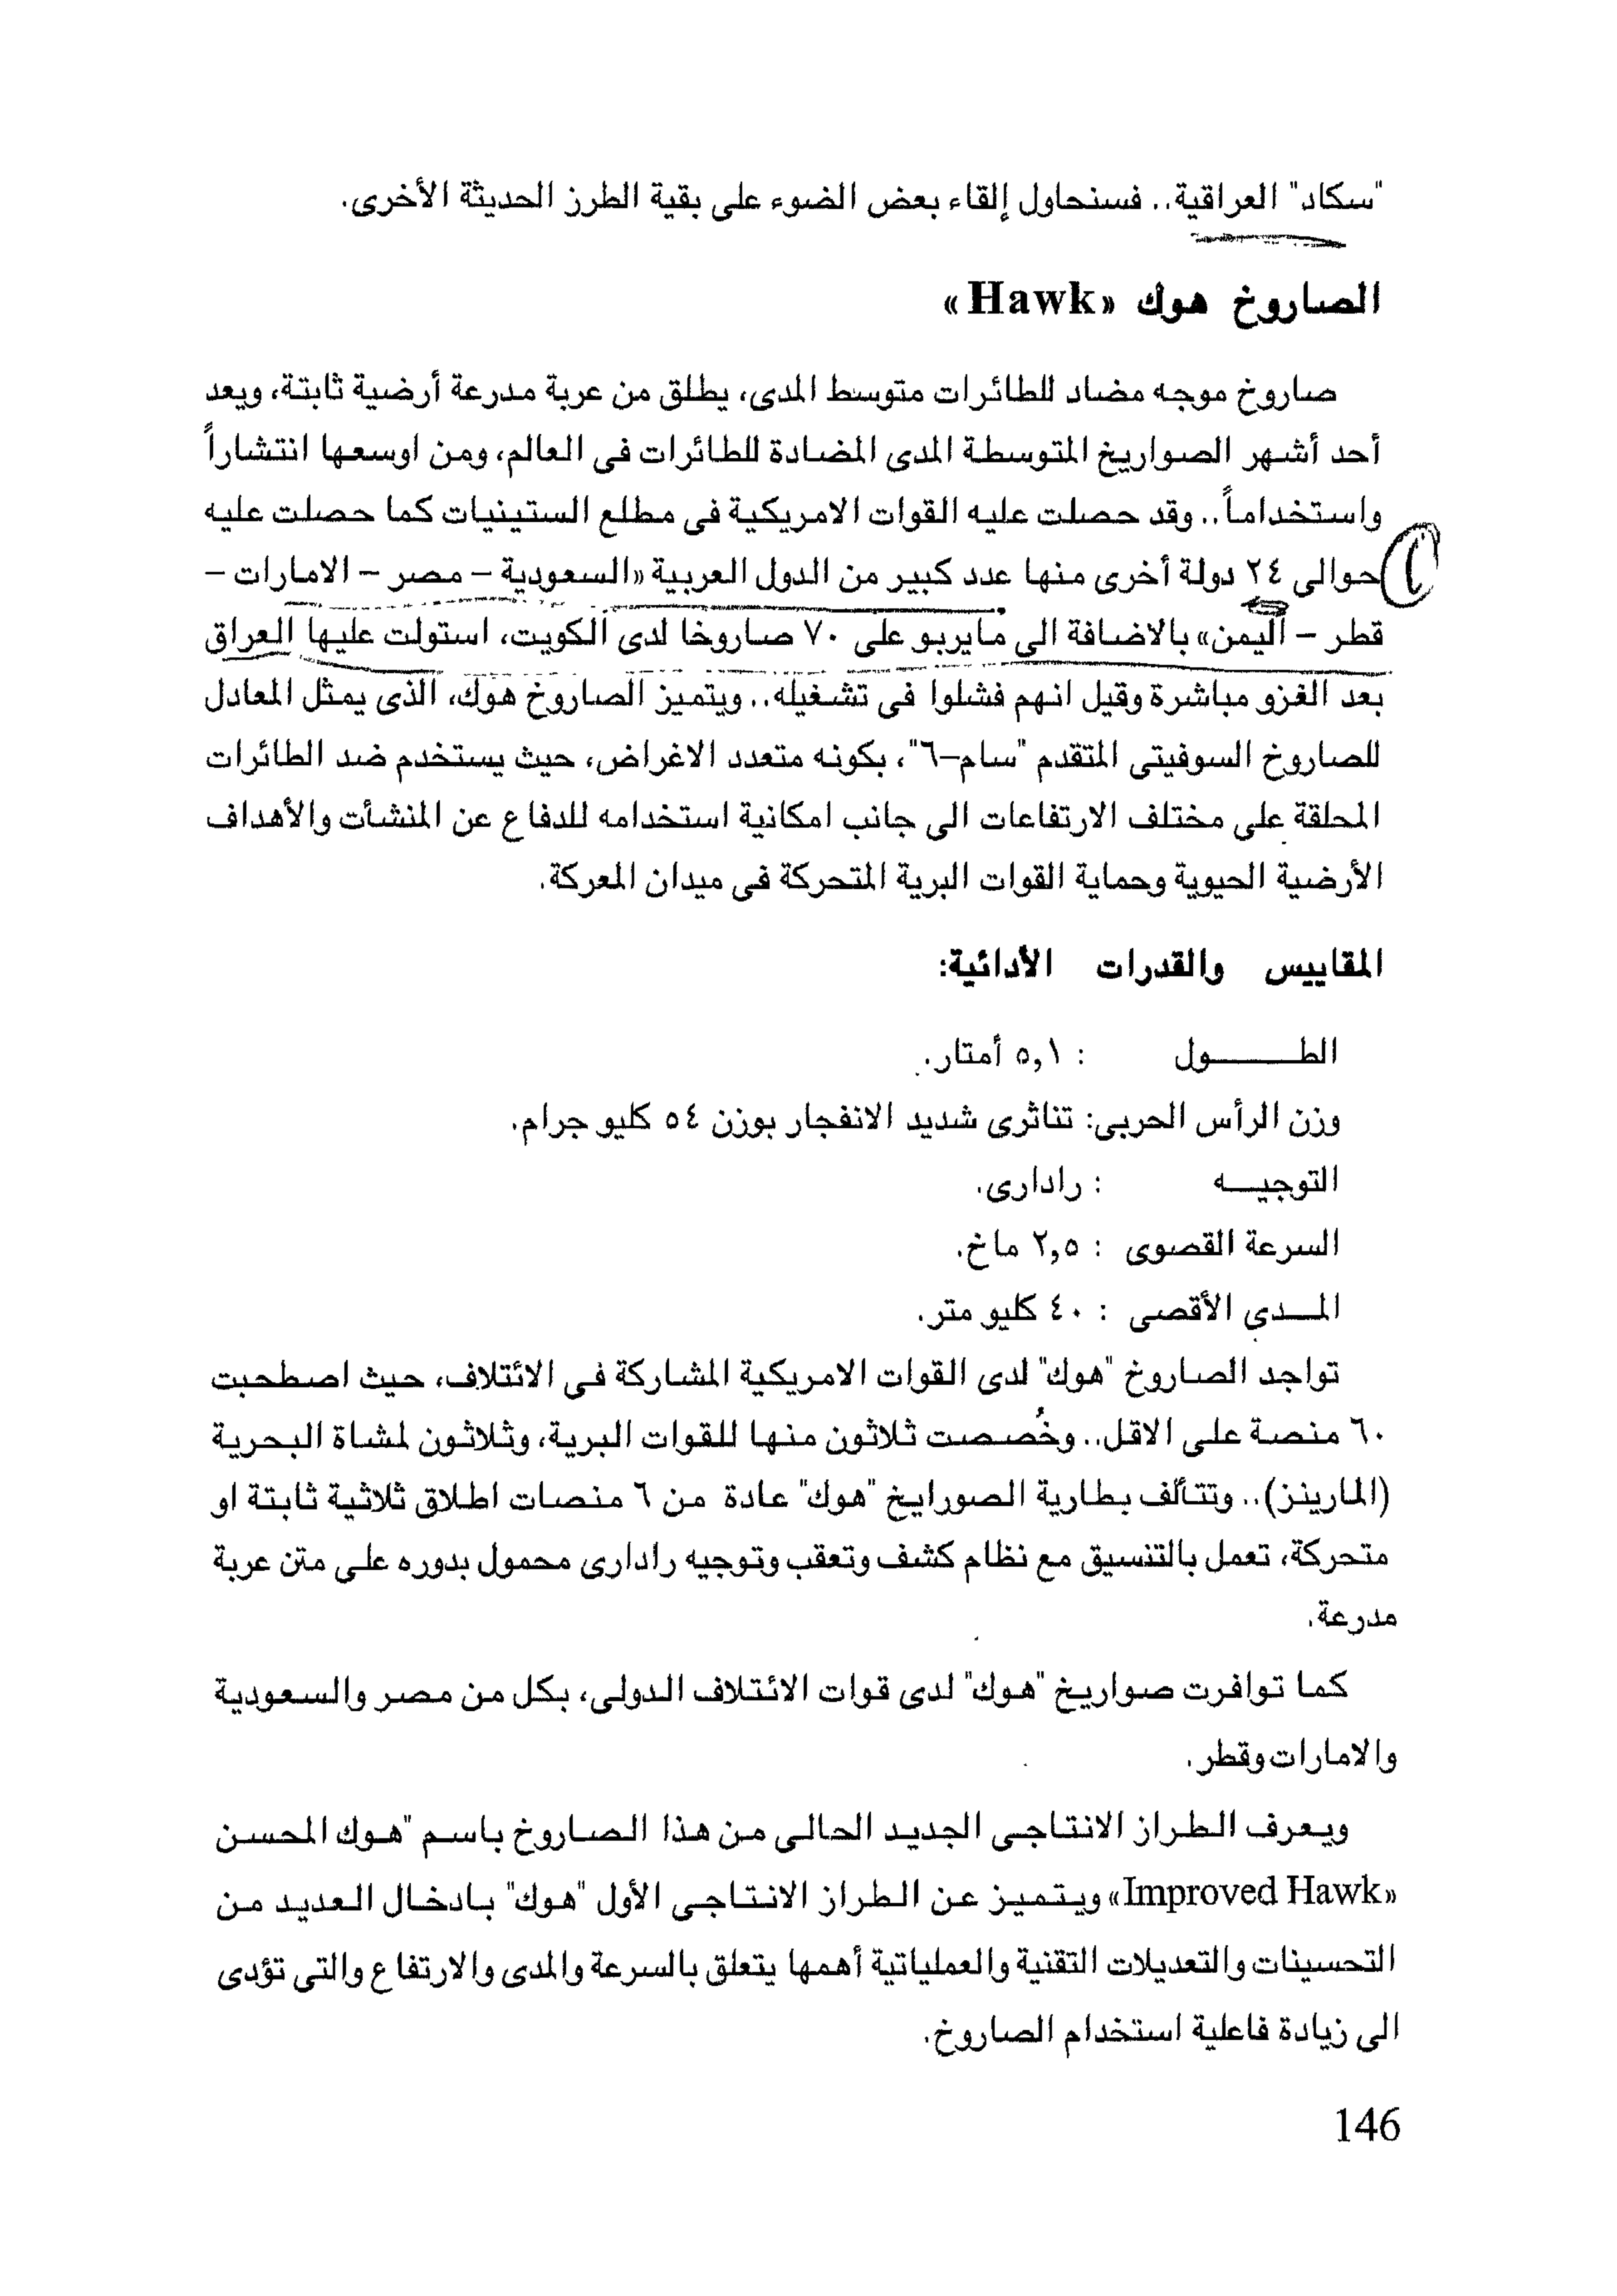 "سكاد" العراقية.. فسنحاول إلقاء بعض الضوء على بقية الطرز الحديثة الأخرى.
الصاروخ هوك «Hawk»
صاروخ موجه مضاد للطائرات متوسط المدى، يطلق من عربة مدرعة أرضية ثابتة، ويعد
أحد أشهر الصواريخ المتوسطة المدى المضادة للطائرات فى العالم، ومن اوسعها انتشاراً
واستخداماً.. وقد حصلت عليه القوات الامريكية فى مطلع الستينيات كما حصلت عليه
حوالى ٢٤ دولة أخرى منها عدد كبير من الدول العربية «السعودية – مصر – الامارات –
قطر – اليمن» بالاضافة الى مايربو على ٧٠ صاروخا لدى الكويت، استولت عليها العراق
بعد الغزو مباشرة وقيل انهم فشلوا فى تشغيله.. ويتميز الصاروخ هوك، الذى يمثل المعادل
للصاروخ السوفيتى المتقدم "سام–٦"، بكونه متعدد الاغراض، حيث يستخدم ضد الطائرات
المحلقة على مختلف الارتفاعات الى جانب امكانية استخدامه للدفاع عن المنشأت والأهداف
الأرضية الحيوية وحماية القوات البرية المتحركة فى ميدان المعركة.
المقاييس والقدرات الأدائية:
الطـــــول : ٥,١ أمتار.
وزن الرأس الحربى: تناثرى شديد الانفجار بوزن ٥٤ كليو جرام.
التوجيـــه : رادارى.
السرعة القصوى : ٢,٥ ماخ.
المــدى الأقصى : ٤٠ كليو متر.
تواجد الصاروخ "هوك" لدى القوات الامريكية المشاركة فى الائتلاف، حيث اصطحبت
٦٠ منصة على الاقل.. وخُصصت ثلاثون منها للقوات البرية، وثلاثون لمشاة البحرية
(المارينز).. وتتألف بطارية الصورايخ "هوك" عادة من ٦ منصات اطلاق ثلاثية ثابتة او
متحركة، تعمل بالتنسيق مع نظام كشف وتعقب وتوجيه رادارى محمول بدوره على متن عربة
مدرعة.
كما توافرت صواريخ "هوك" لدى قوات الائتلاف الدولى، بكل من مصر والسعودية
والامارات وقطر.
ويعرف الطراز الانتاجى الجديد الحالى من هذا الصاروخ باسم "هوك المحسن
«Improved Hawk» ويتميز عن الطراز الانتاجى الأول "هوك" بادخال العديد من
التحسينات والتعديلات التقنية والعملياتية أهمها يتعلق بالسرعة والمدى والارتفاع والتى تؤدى
الى زيادة فاعلية استخدام الصاروخ.
146